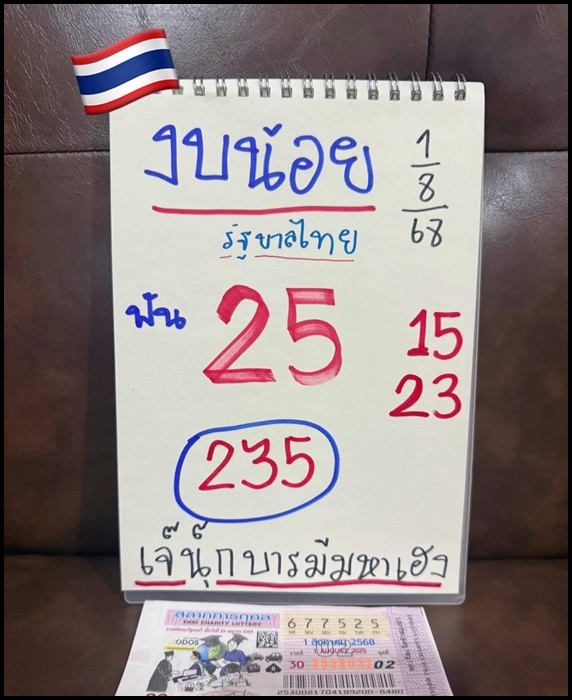 งบน้อย
1
8
68
รัฐบาลไทย
ฟัน 25
15
23
235
เจ๊นุ๊กบารมีมหาเฮง
สลากการกุศล
THAI CHARITY LOTTERY
ODOS
677525
1 สิงหาคม 2568
1 AUGUST 2025
30
02